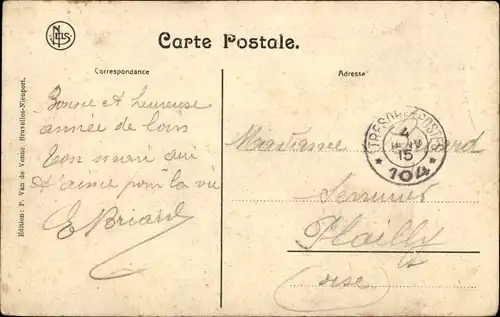 NELS
Carte Postale.
Correspondance
Adresse
Edition: P. Van de Venne, Bruxelles-Nieuport.
Bonne et heureuse
année de loin
Ton mari qui
t'aime pour la vie
E Briard
TRESOR ET POSTES
4
JANV
15
* 104 *
Madame Briard
Plailly
Oise